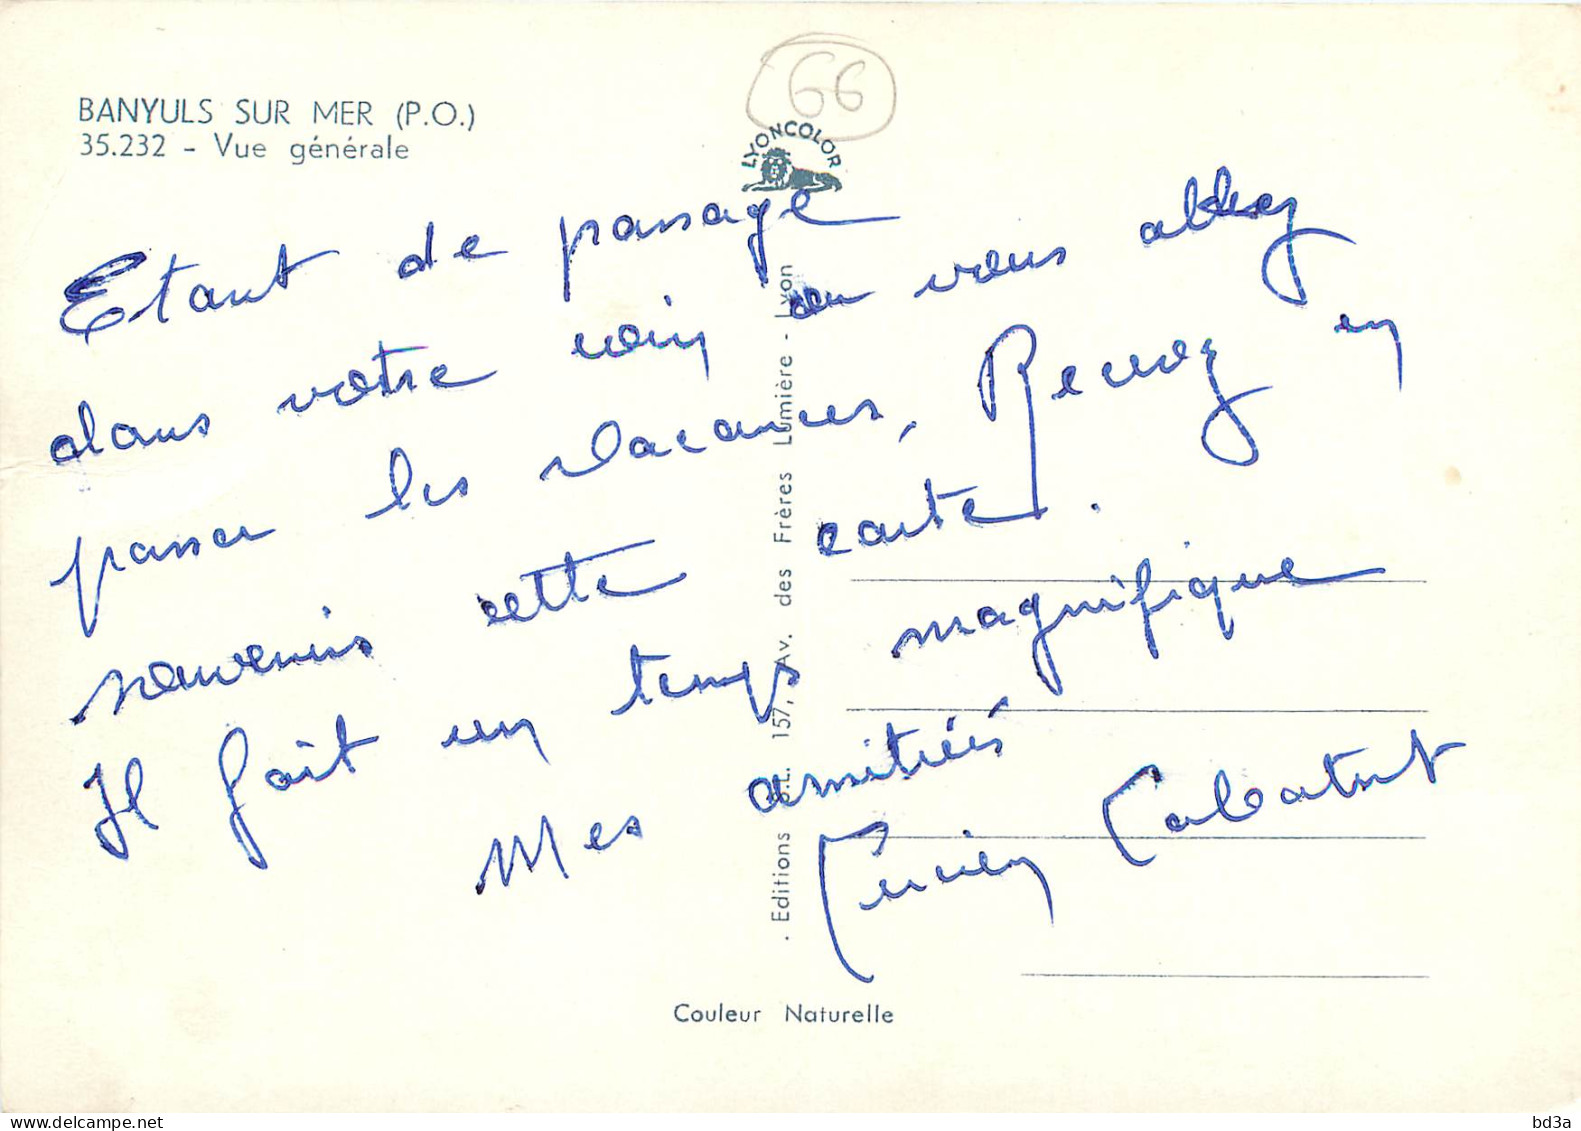 66
BANYULS SUR MER (P.O.)
35.232 - Vue générale
LYONCOLOR
Etant de passage
dans votre coin ou vous allez
passer les vacances, Recevez en
souvenirs cette carte.
Il fait un temps magnifique
Mes amitiés
Lucien Cabatut
. Editions S.L. 157, Av. des Frères Lumière - Lyon
Couleur Naturelle
delcampe.net
bd3a